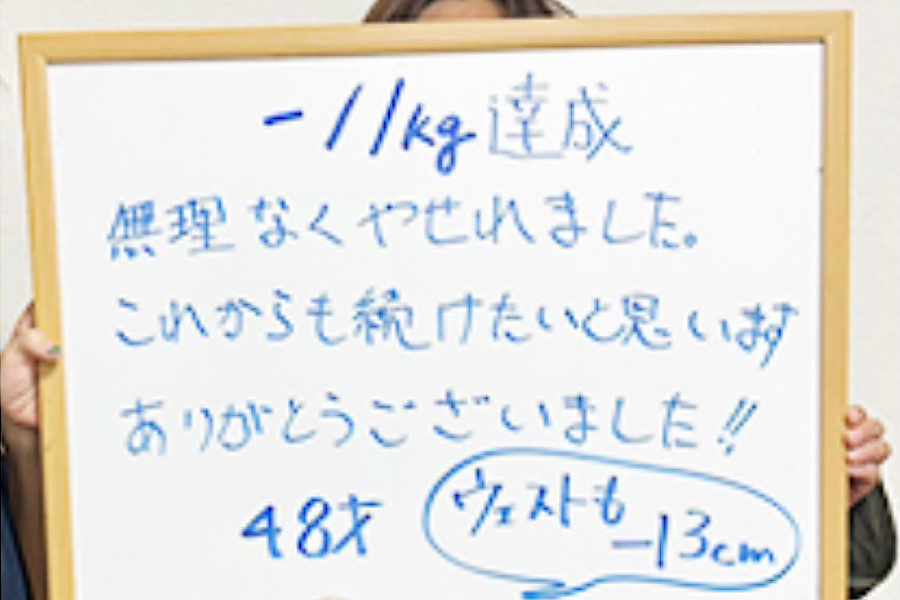 -11kg 達成
無理なくやせれました。
これからも続けたいと思います
ありがとうございました!!
48才
ウェストも
-13cm